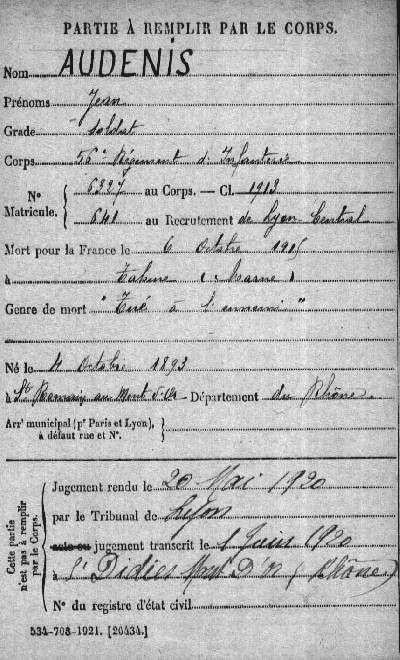 PARTIE À REMPLIR PAR LE CORPS.
Nom AUDENIS
Prénoms Jean
Grade soldat
Corps 56e Régiment d'Infanterie
N° Matricule. { 6397 au Corps. — Cl. 1913
641 au Recrutement de Lyon Central
Mort pour la France le 6 Octobre 1915
à Tahure (Marne)
Genre de mort "Tué à l'ennemi"
Né le 4 Octobre 1893
à St Romain au Mont d'Or Département du Rhône.
Arrt municipal (pr Paris et Lyon), à défaut rue et N°. }
Cette partie n'est pas à remplir par le Corps.
Jugement rendu le 20 Mai 1920
par le Tribunal de Lyon
acte ou jugement transcrit le 1 Juin 1920
à St Didier Mont D'Or (Rhône)
N° du registre d'état civil
534-708-1921. [26434.]